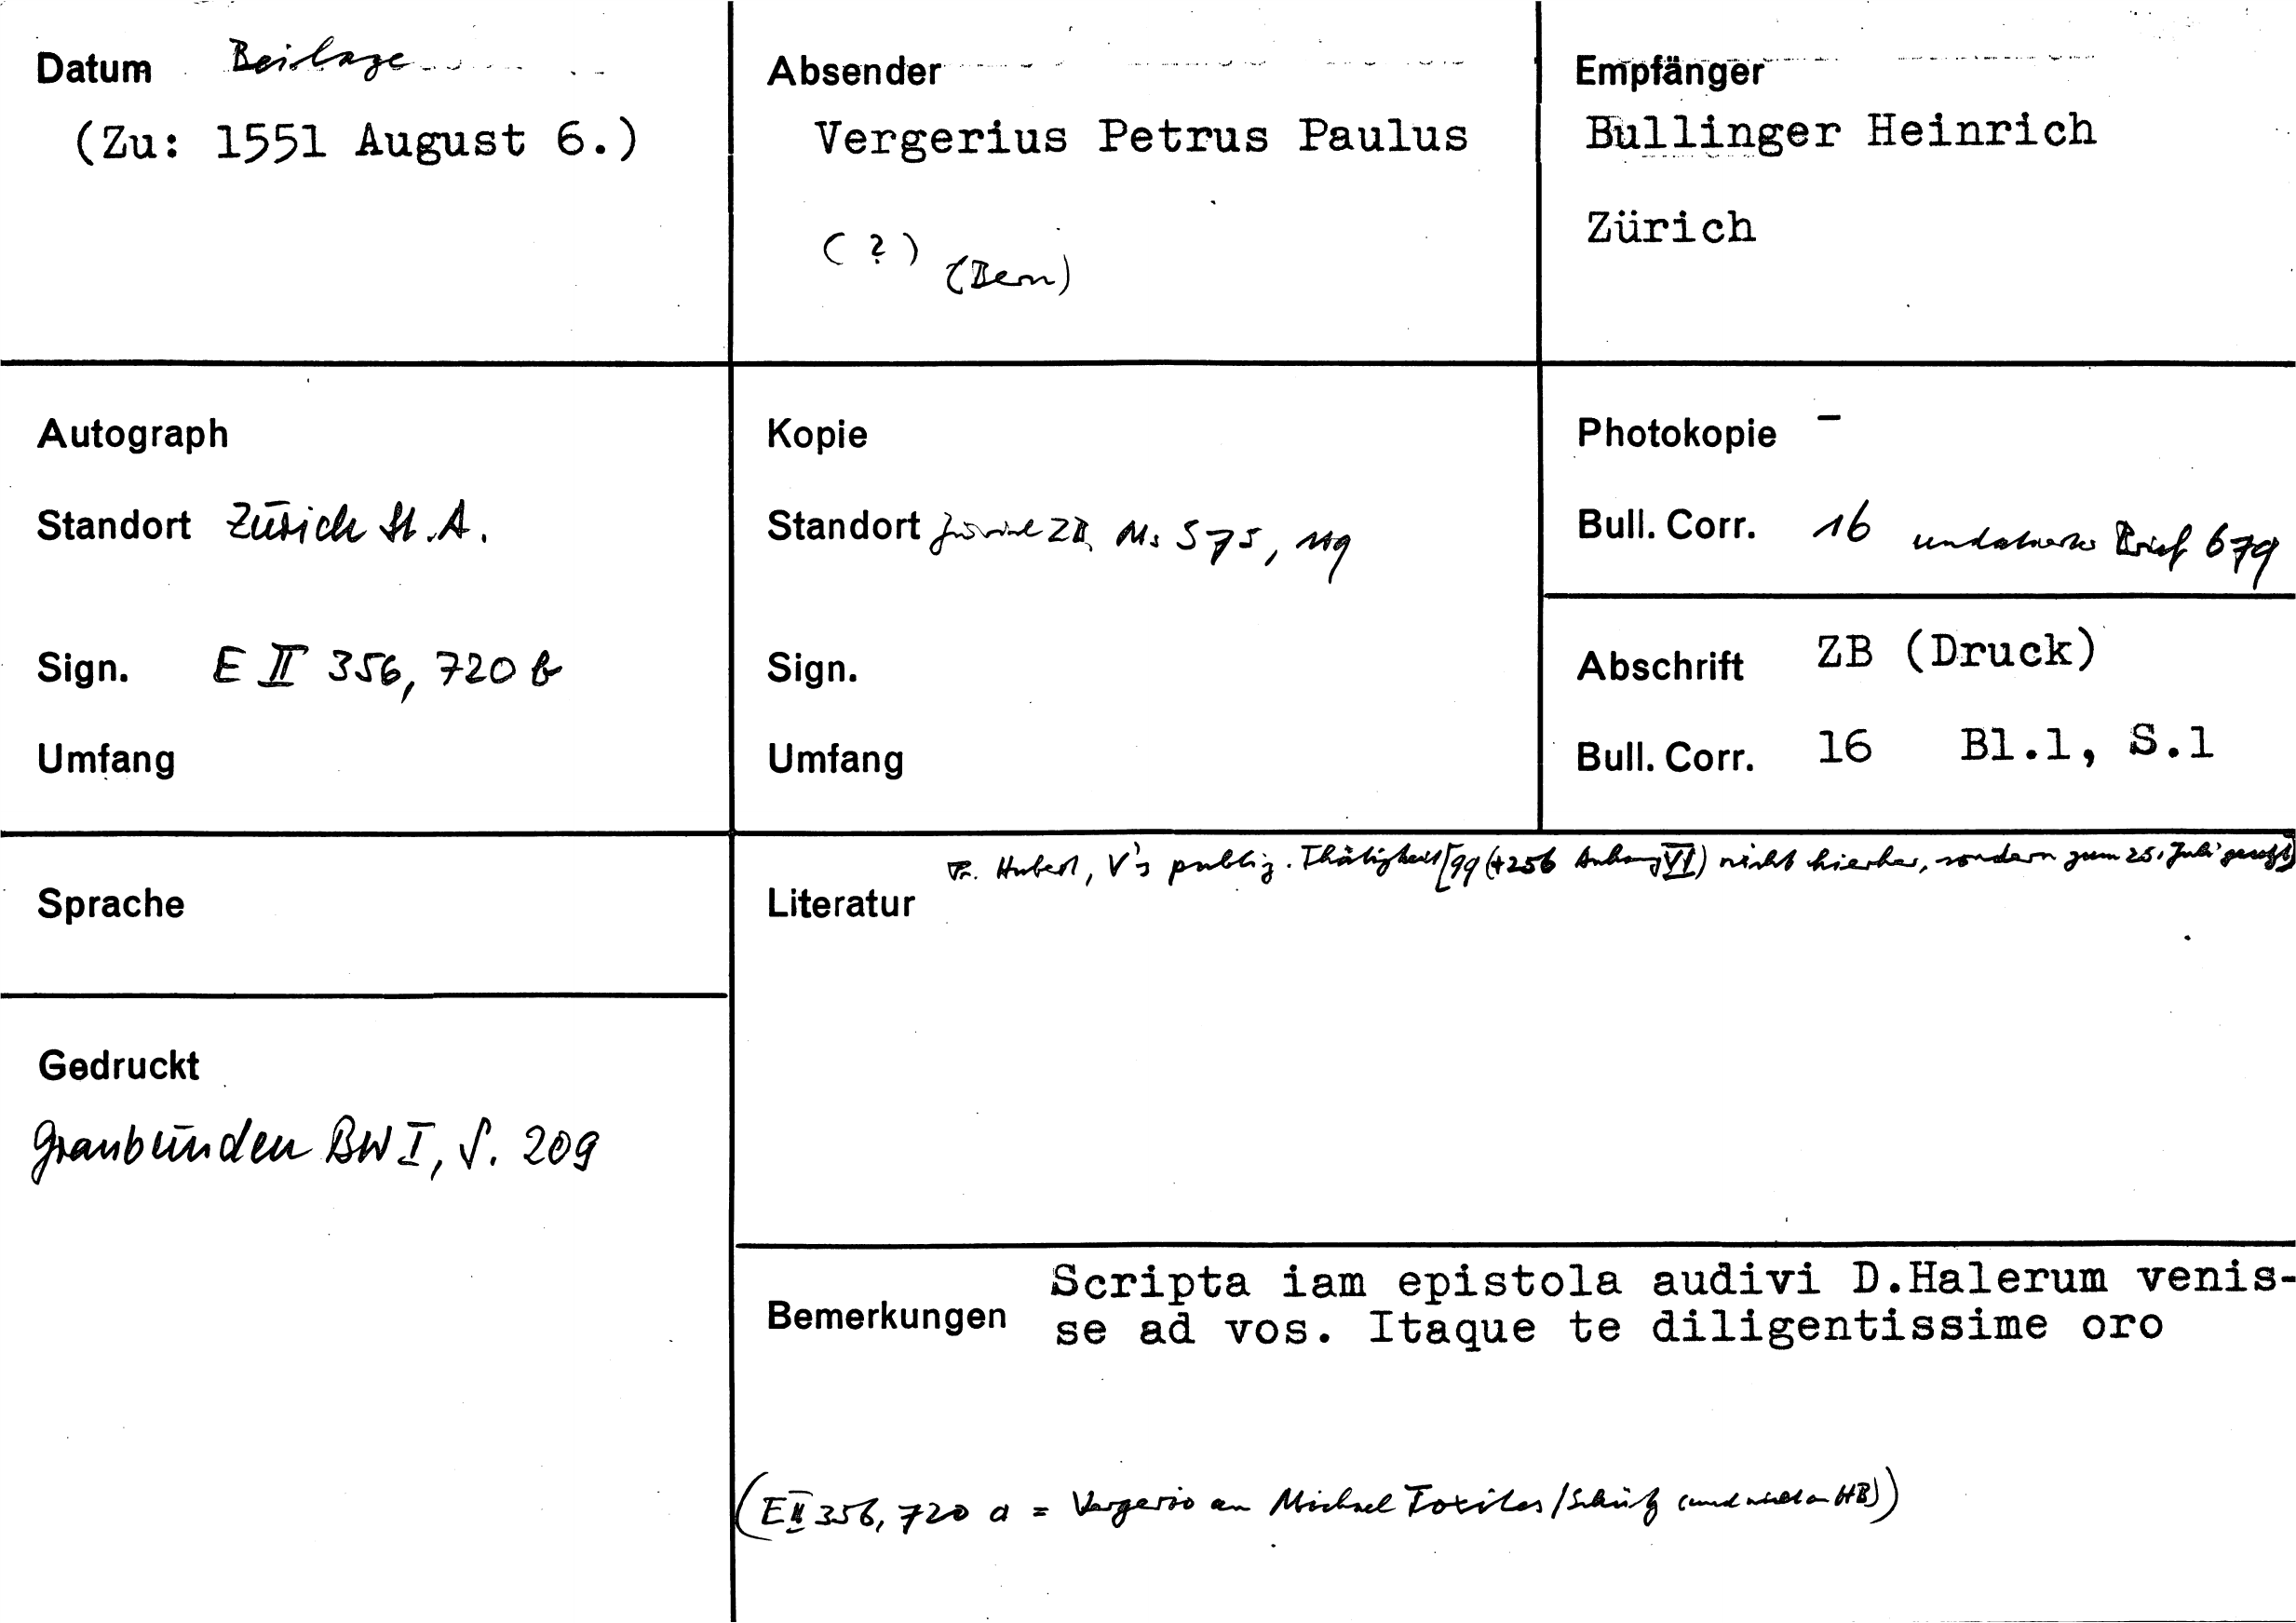 Datum Beilage
(Zu: 1551 August 6.)
Absender
Vergerius Petrus Paulus
(?) (Bern)
Empfänger
Bullinger Heinrich
Zürich
Autograph
Standort Zürich St.A.
Sign. E II 356, 720 b
Umfang
Kopie
Standort Zürich ZB, Ms S 75, 119
Sign.
Umfang
Photokopie -
Bull. Corr. 16 undatierter Brief 679
Abschrift ZB (Druck)
Bull. Corr. 16 Bl.1, S.1
Sprache
Literatur Fr. Hubert, V's publiz. Thätigkeit [99 (+256 Anhang VI) nicht hierher, sondern zum 25. Juli gesetzt]
Gedruckt
Graubünden BW I, S. 209
Bemerkungen Scripta iam epistola audivi D.Halerum venis-
se ad vos. Itaque te diligentissime oro
(E II 356, 720 a = Vergerio an Michael Toxites/Schütz (und nicht an HB))